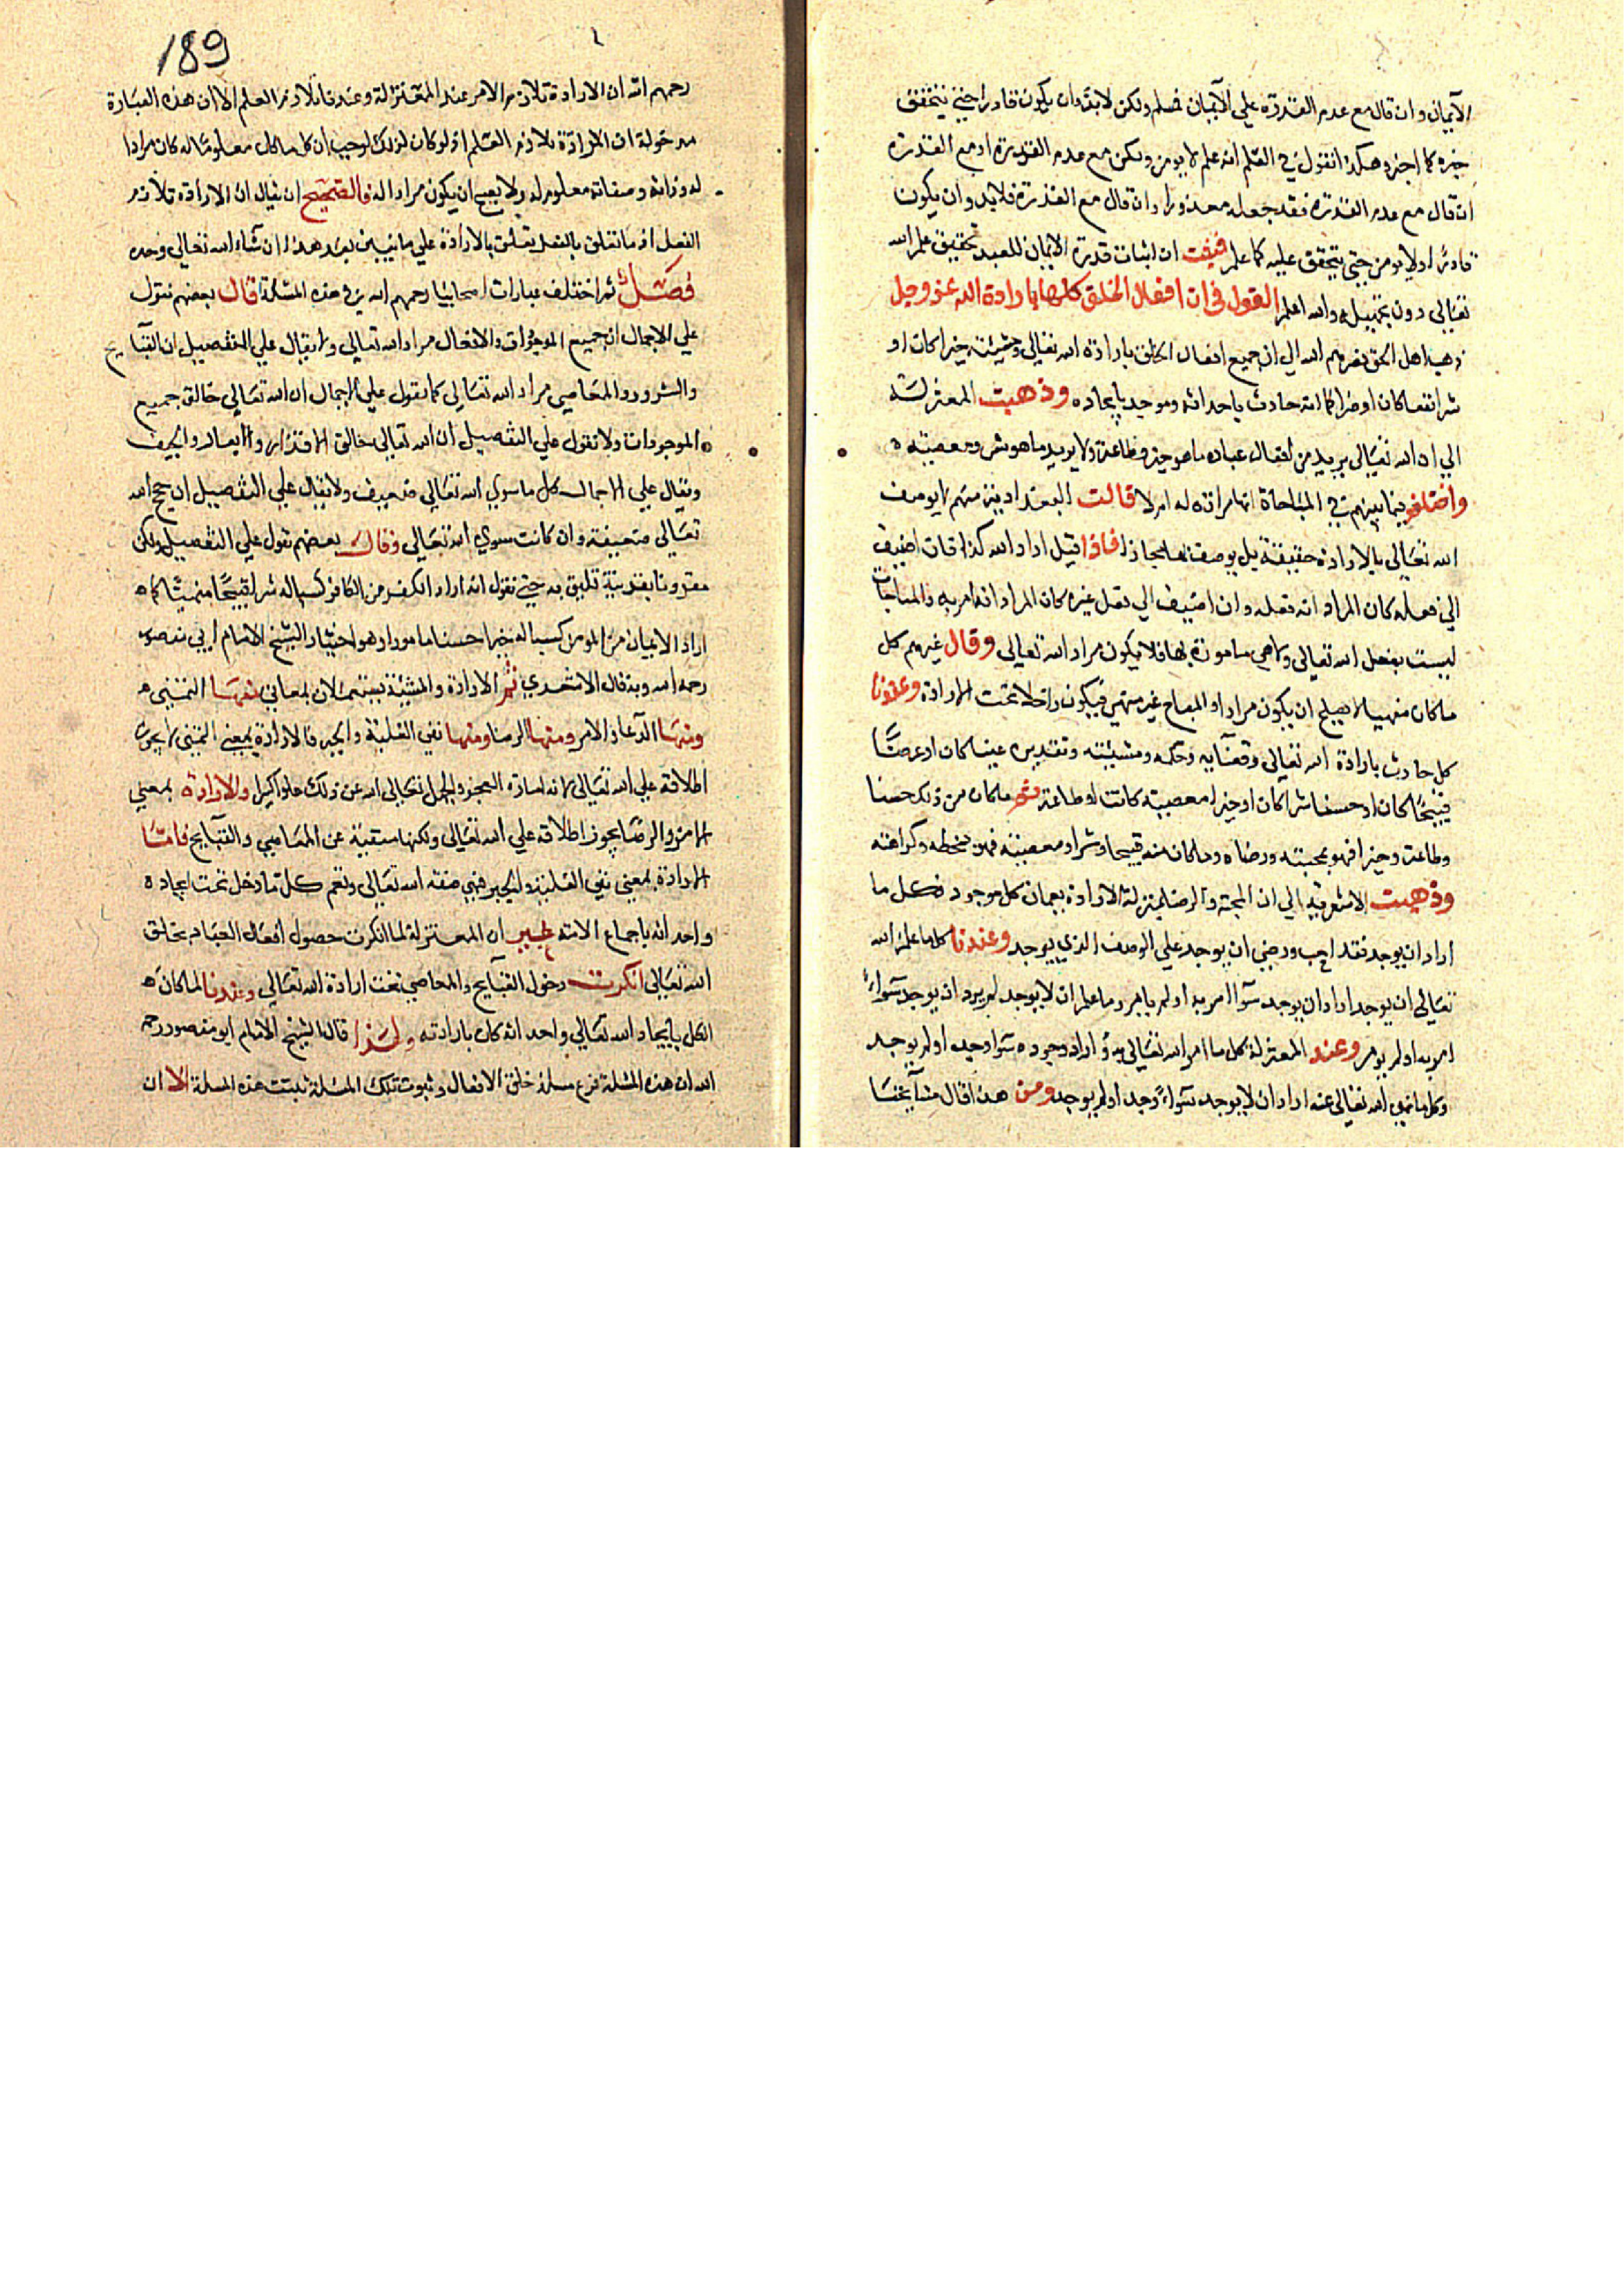 الايمان وان قال مع عدم القدرة علي الايمان فسلم ولكن لابد وان يكون قادرا حتي يتحقق
خبره كما اخبر وهكذا نقول في العلم انه علم لا يومن ولكن مع عدم القدرة او مع القدرة
ان قال مع عدم القدرة فقد جعله معذورا وان قال مع القدرة فلا بد وان يكون
قادرا ولا يومن حتي يتحقق عليه كما علم فثبت ان اثبات قدرة الايمان للعبد تحقيق علم الله
تعالي دون تجهيله والله اعلم القول في ان افعال الخلق كلها بارادة الله عز وجل
ذهب اهل الحق نصرهم الله الي ان جميع افعال الخلق بارادة الله تعالي ومشيئته خيرا كان او
شرا نفعا كان او ضرا كما انه حادث باحداثه وموجد بايجاده وذهبت المعتزلة
الي ان الله تعالي يريد من افعال عباده ما هو خير وطاعة ولا يريد ما هو شر ومعصية
واختلفو فيما بينهم في المباحاة انها مرادة له ام لا قالت البغدادية منهم لا يوصف
الله تعالي بالارادة حقيقة بل يوصف بها مجازا فاذا قيل اراد الله كذا فان اضيف
الي فعله كان المراد انه فعله وان اضيف الي فعل غيره كان المراد انه امر به والمباحات
ليست بفعل الله تعالي ولا هي مامورة بها فلا يكون مراد الله تعالي وقال غيرهم كل
ما كان منهيا لا يصلح ان يكون مرادا والمباح غير منهي فيكون داخلا تحت الارادة وعندنا
كل حادث بارادة الله تعالي وقضايه وحكمه ومشيئته وتقديره عينا كان او عرضا
قبيحا كان او حسنا شرا كان او خيرا معصية كانت او طاعة ثم ما كان من ذلك حسنا
وطاعت وخيرا فهو بمحبته ورضاه وما كان منه قبيحا وشرا ومعصية فهو بسخطه وكراهته
وذهبت الاشعرية الي ان المحبة والرضا بمنزلة الارادة يعمان كل موجود فكل ما
اراد ان يوجد فقد احب ورضي ان يوجد علي الوصف الذي يوجد وعندنا كل ما علم الله
تعالي ان يوجد اراد ان يوجد سوآء امر به او لم يامر وما علم ان لا يوجد لم يرد ان يوجد سوآء
امر به او لم يومر وعند المعتزلة كل ما امر الله تعالي به اراد وجوده سوا وجد او لم يوجد
وكل ما نهي الله تعالي عنه اراد ان لا يوجد سوآء وجد او لم يوجد ومن هذا قال مشايخنا
189
رحمهم الله ان الارادة تلازم الامر عند المعتزلة وعندنا تلازم العلم الا ان هذه العبارة
مدخولة ان الارادة تلازم العلم اذ لو كان لذلك لوجب ان كل ما كان معلوما له كان مرادا
له وذاته وصفاته معلوم له ولا يجب ان يكون مرادا له فالصحيح ان يقال ان الارادة تلازم
الفعل اذ ما تعلق بالفعل يتعلق بالارادة علي ما نبين بعد هذا ان شاء الله تعالي وحده
فصل ثم اختلف عبارات اصحابنا رحمهم الله في هذه المسئلة قال بعضهم نقول
علي الاجمال ان جميع الموجودات والافعال مراد الله تعالي ولا يقال علي التفصيل ان القبايح
والشرور والمعاصي مراد الله تعالي كما يقول علي الاجمال ان الله تعالي خالق جميع
الموجودات ولا نقول علي التفصيل ان الله تعالي خالق الاقذار والابعار والجيف
ويقال علي الاجمال كل ما سوي الله تعالي ضعيف ولا يقال علي التفصيل ان حجج الله
تعالي ضعيفة وان كانت سوي الله تعالي وقال بعضهم نقول علي التفصيل ولكن
مقرونا بقرينة تليق به حتي نقول انه اراد الكفر من الكافر كسبا له شرا قبيحا منهيا كما
اراد الايمان من المومن كسبا له خيرا حسنا مامورا وهو اختيار الشيخ الامام ابي منصور
رحمه الله وبه قال الاشعري ثم الارادة والمشيئة يستعملان لمعاني منها التمني
ومنها الدعا والامر ومنها الرضا ومنها نفي الغلبة والجبر فالارادة بمعني التمني لا يجوز
اطلاقه علي الله تعالي لانه امارة العجز والجهل تعالي الله عن ذلك علوا كبيرا والارادة بمعني
الامر والرضا يجوز اطلاقه علي الله تعالي ولكنها منتفية عن المعاصي والقبايح فاما
الارادة بمعني نفي الغلبة والجبر فهي صفة الله تعالي وتعم كل ما دخل تحت ايجاده
واحداثه باجماع الامة غير ان المعتزلة لما انكرت حصول افعال العباد بخلق
الله تعالي انكرت دخول القبايح والمعاصي تحت ارادة الله تعالي وعندنا لما كان
الكل بايجاد الله تعالي واحداثه كان بارادته ولهذا قال الشيخ الامام ابو منصور رحمه
الله ان هذه المسئلة فرع مسئلة خلق الافعال وثبوت تلك المسئلة ثبتت هذه المسئلة الا ان